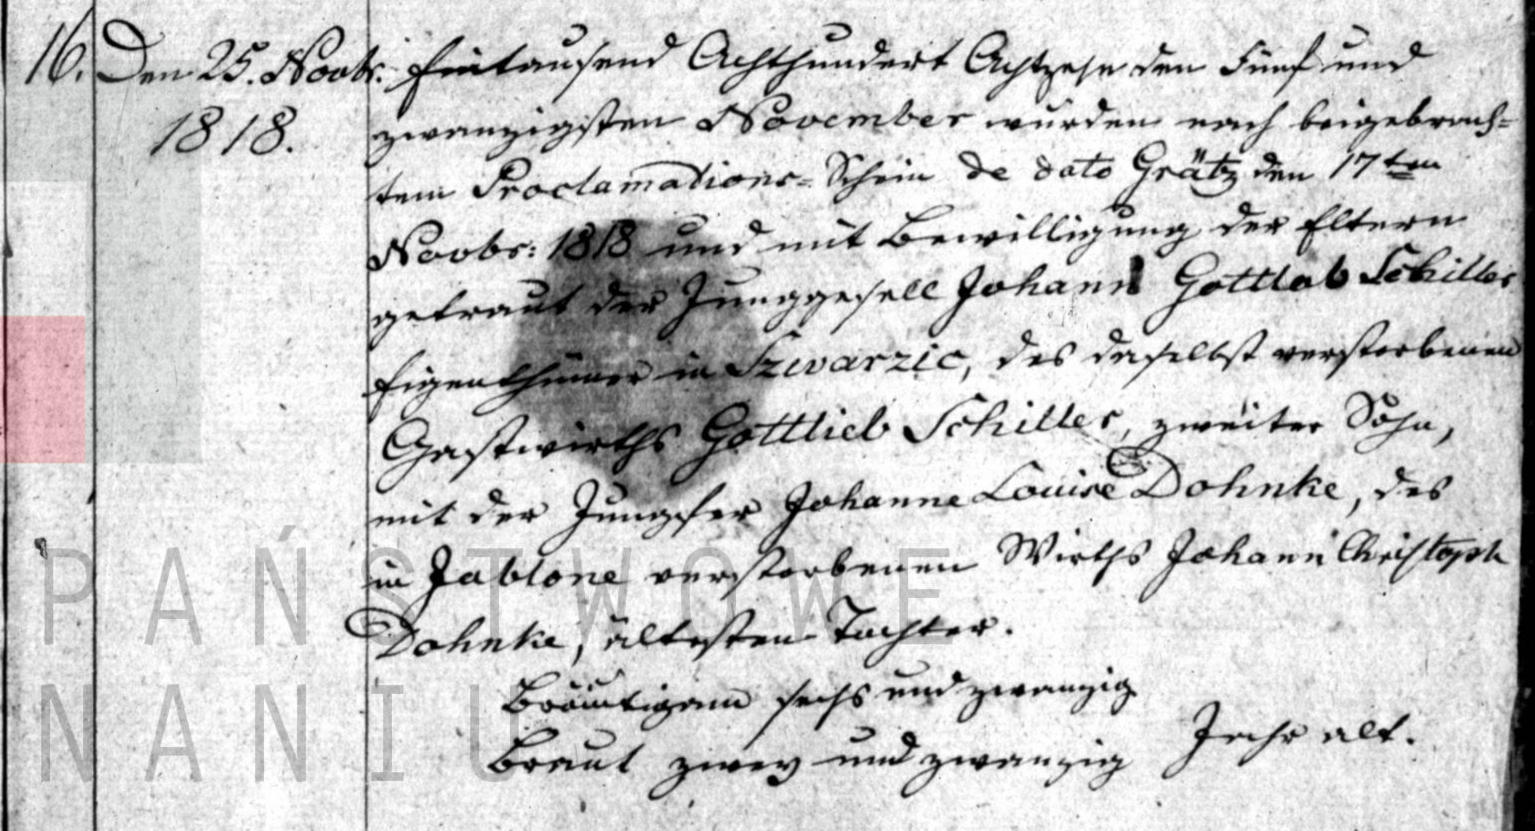 16. Den 25. Novbr. Eintausend Achthundert Achtzehn den Fünf und
1818. zwanzigsten November wurden nach beigebrach-
tem Proclamations-Schein de dato Grätz den 17ten
Novbr: 1818 und mit Bewilligung der Eltern
getraut der Junggesell Johann Gottlob Schiller
Eigenthümer in Szwarzic, des daselbst verstorbenen
Gastwirths Gottlieb Schiller, zweiter Sohn,
mit der Jungfer Johanne Louise Dohnke, des
in Jablone verstorbenen Wirths Johann Christoph
Dohnke, ältesten Tochter.
Bräutigam sechs und zwanzig
Braut zwey und zwanzig Jahr alt.
PAŃSTWOWE
NANIU